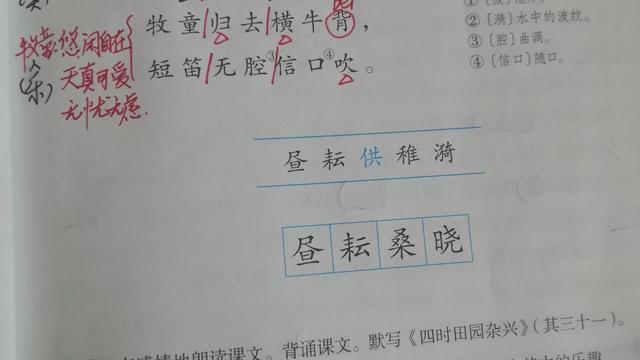 牧童归去横牛背，
短笛无腔③信口④吹。
牧童：悠闲自在
天真可爱
无忧无虑
(乐)
②〔漪〕水中的波纹。
③〔腔〕曲调。
④〔信口〕随口。
昼 耘 供 稚 漪
昼耘桑晓
有感情地朗读课文。背诵课文。默写《四时田园杂兴》（其三十一）。
的乐趣